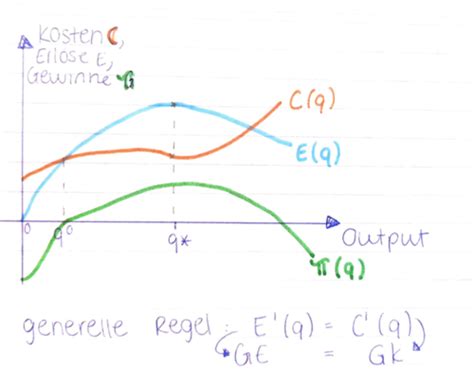 Kosten C,
Erlöse E,
Gewinne G
C(q)
E(q)
0
q⁰
q*
Output
π(q)
generelle Regel: E'(q) = C'(q)
GE = GK